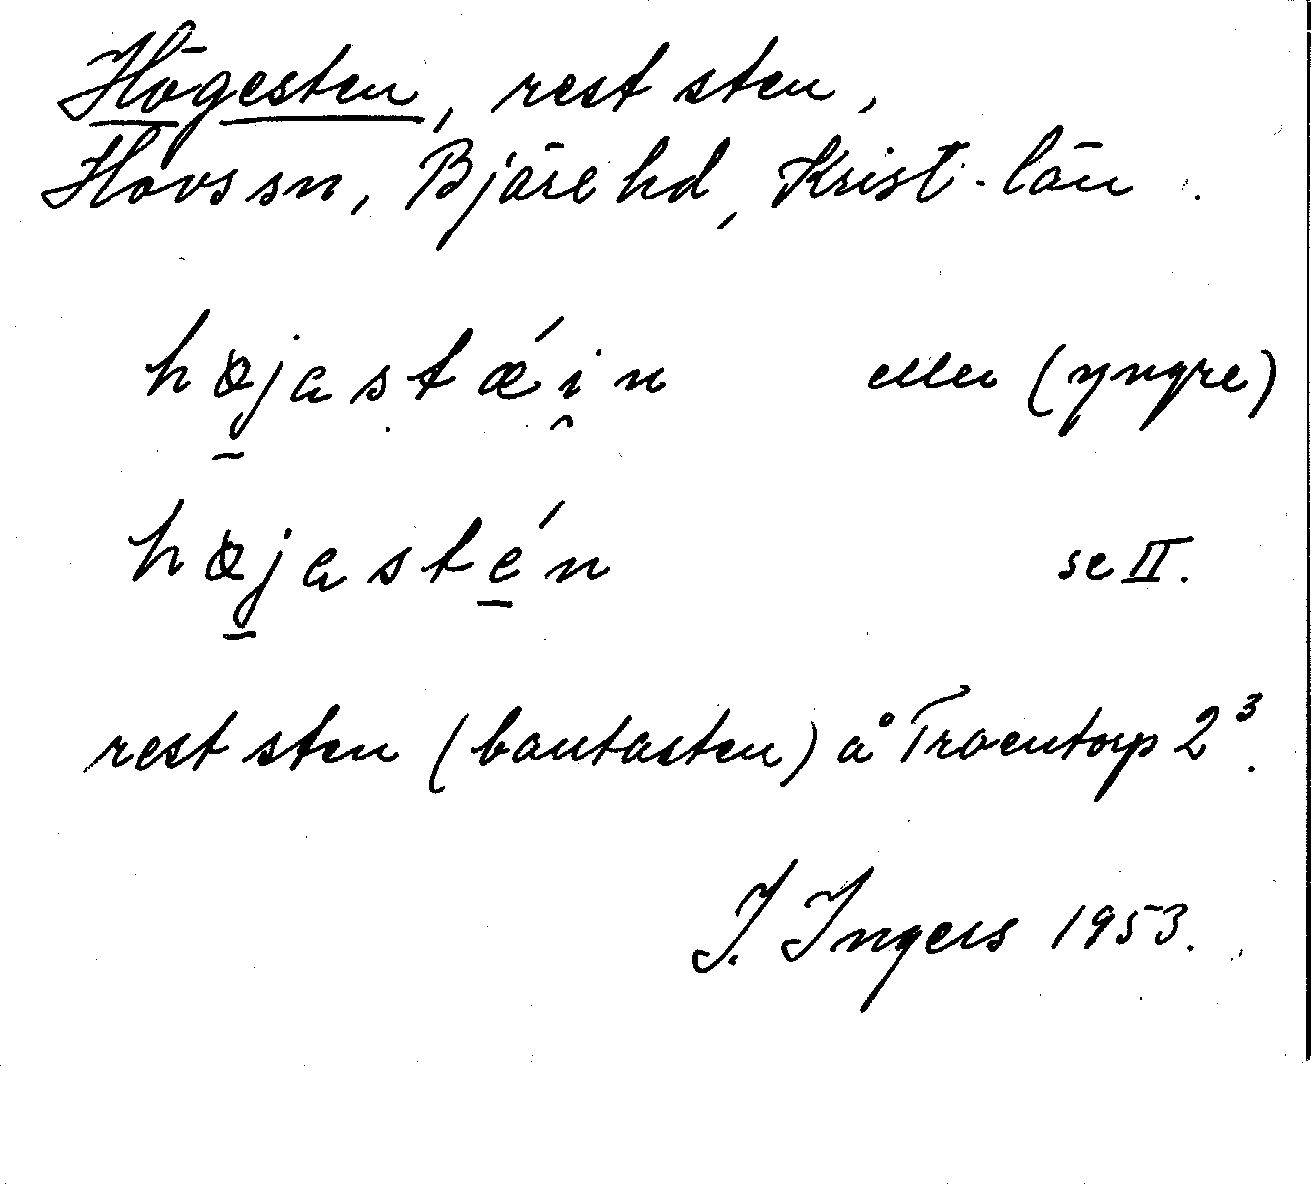 Högesten, rest sten,
Hovs sn, Bjäre hd, Krist. län.
højastǽi̯n eller (yngre)
højasté̠n se II.
rest sten (bautasten) å Troentorp 2³.
I. Ingers 1953.